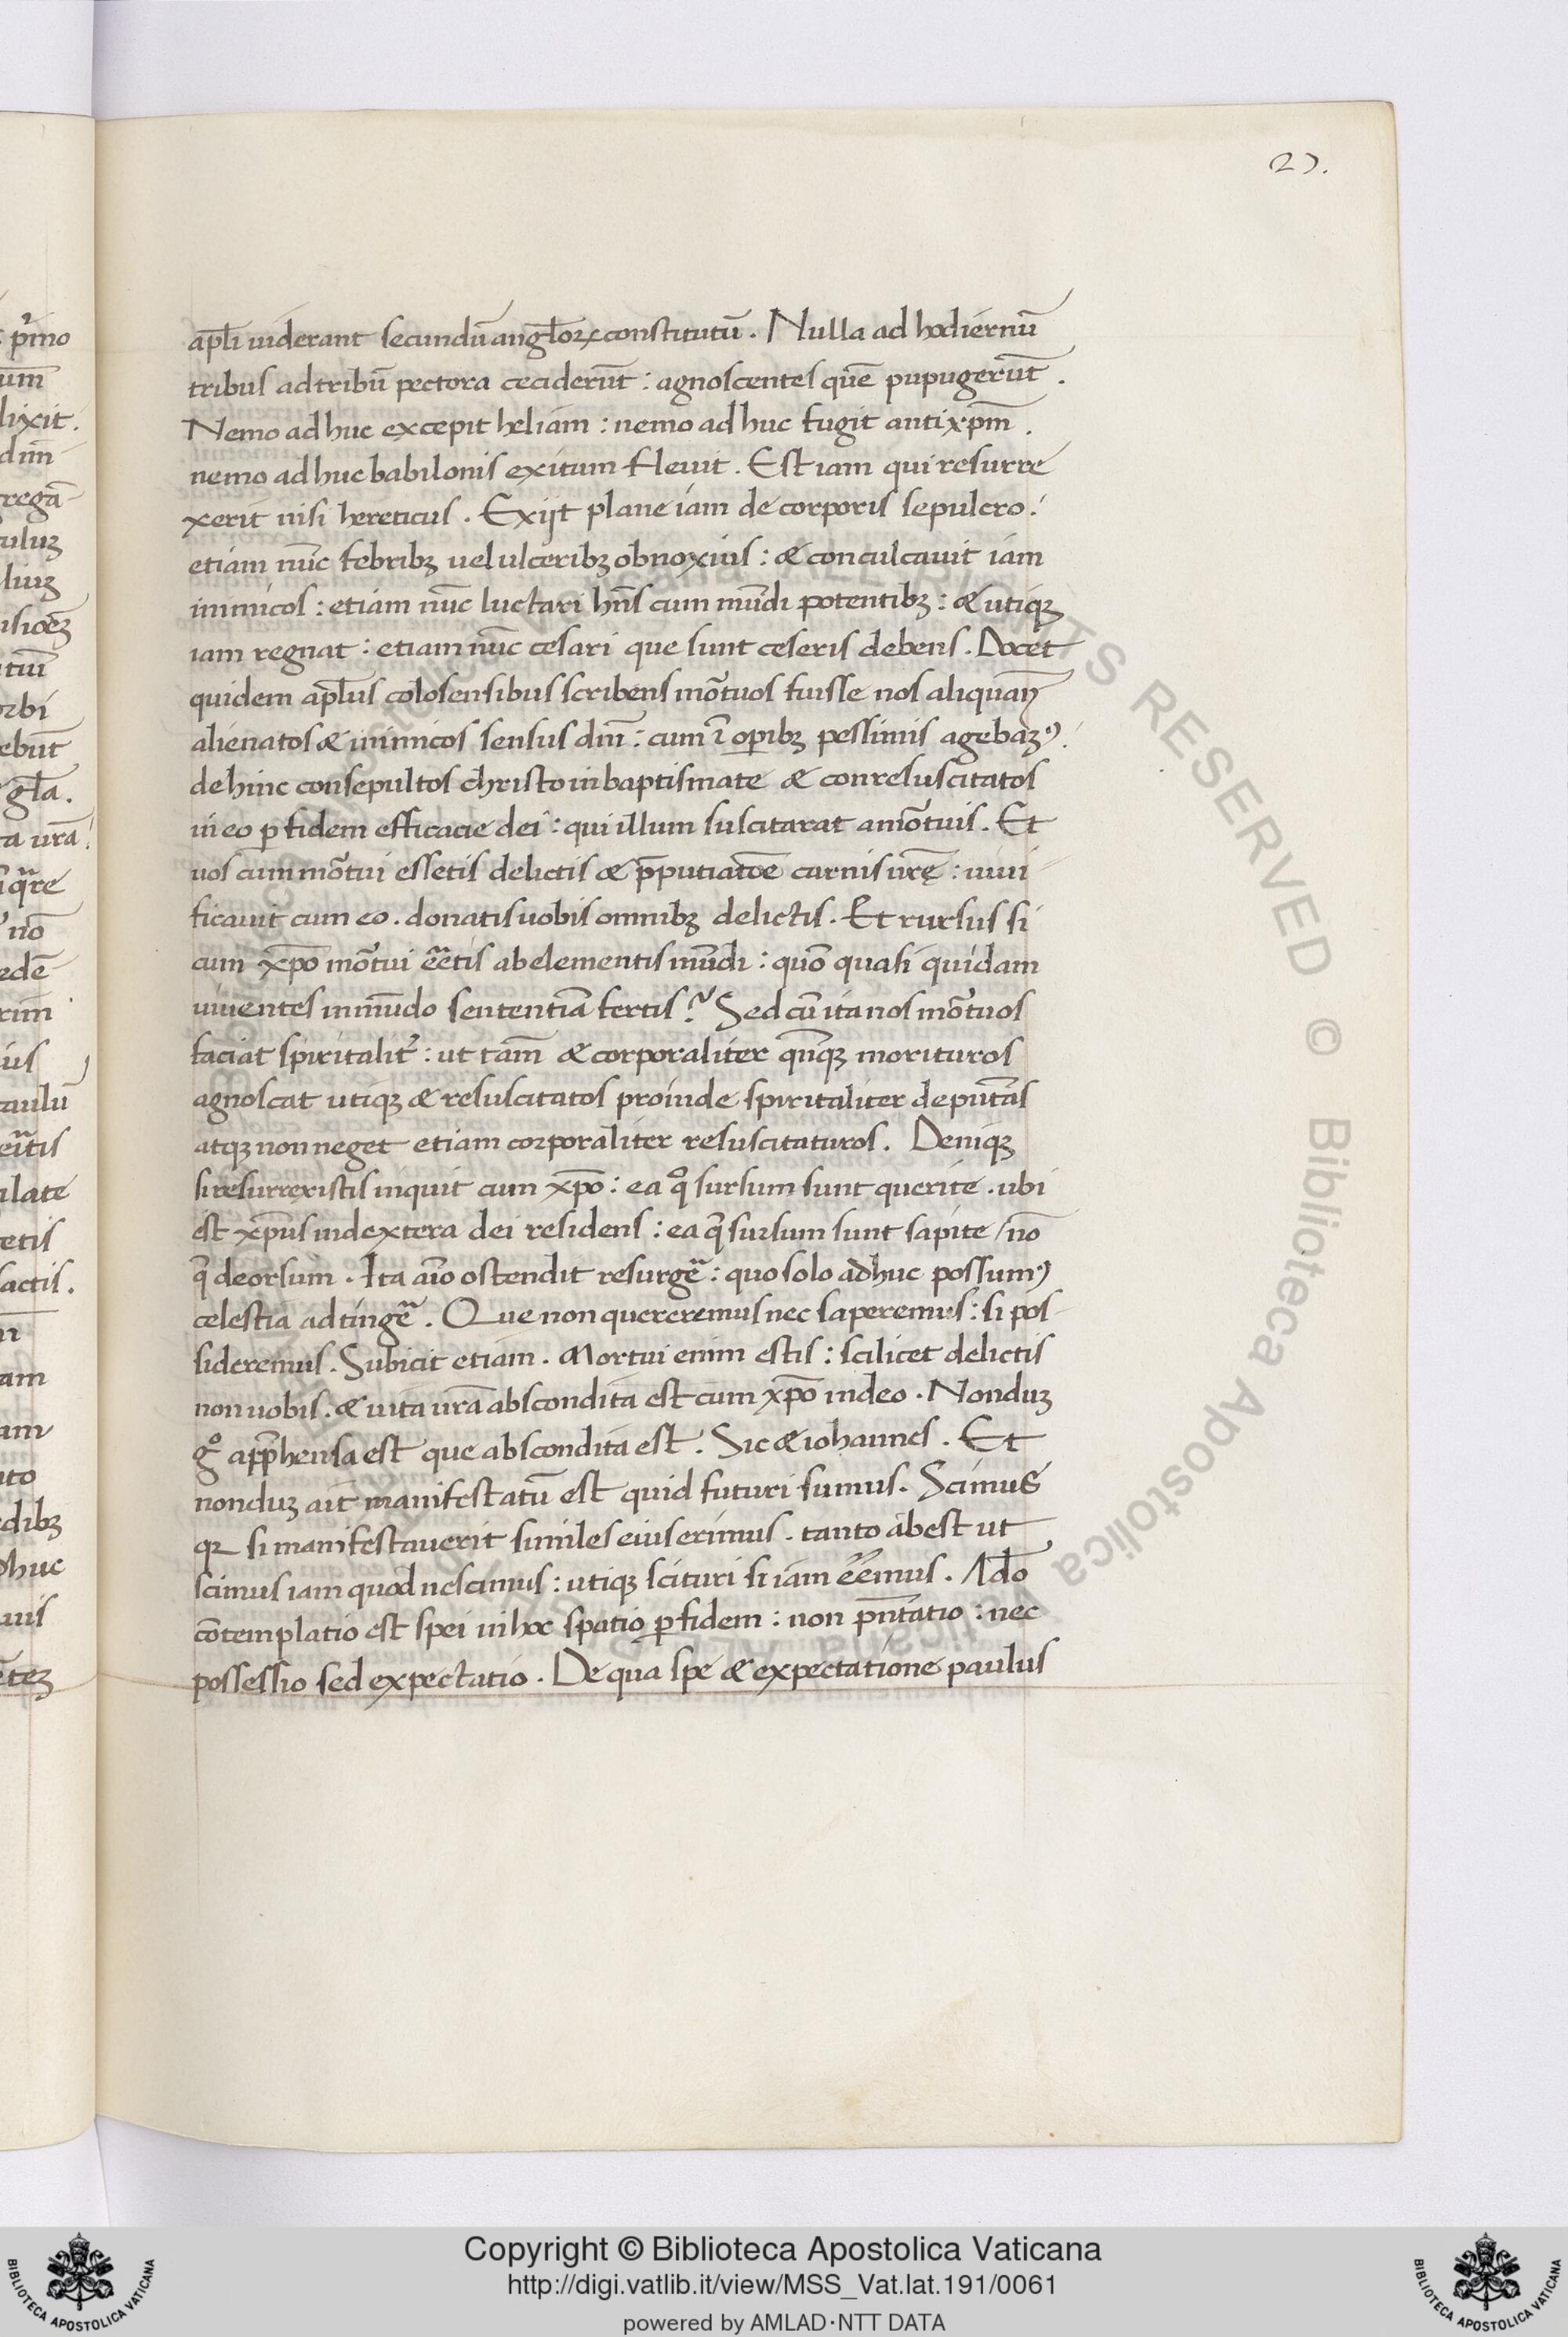 27.
apl̄i uiderant secundū angl̄oꝝ constitutū. Nulla ad hodiernū
tribus ad tribū pectora ceciderūt: agnoscentes quē pupugerūt.
Nemo ad huc excepit heliam: nemo ad huc fugit antixp̄m.
nemo ad huc babilonis exitum fleuit. Est iam qui resurre
xerit nisi hereticus. Exijt plane iam de corporis sepulcro:
etiam nūc febribꝫ uel ulceribꝫ obnoxius: & conculcauit iam
inimicos: etiam nūc luctari hn̄s cum mūdi potentibꝫ: & utiqꝫ
iam regnat: etiam nūc cesari que sunt ceseris debens. Docet
quidem apl̄us colosensibus scribens mōtuos fuisse nos aliquan̄
alienatos & inimicos sensus dn̄i: cum ī oꝑibꝫ pessimis agebamꝰ.
dehinc consepultos christo in baptismate & conresuscitatos
in eo ꝑ fidem efficacie dei: qui illum suscitarat a mōtuis. Et
uos cum mōtui essetis delictis & p̄putiatōe carnis ur̄ę: uiui
ficauit cum eo. donatis uobis omnibꝫ delictis. Et rursus si
cum xp̄o mōtui eētis ab elementis mūdi: quō quasi quidam
uiuentes in mūdo sententiā fertis? Sed cū ita nos mōtuos
faciat spiritalit̄: ut tam̄ & corporaliter qn̄qꝫ morituros
agnoscat utiqꝫ & resuscitatos proinde spiritaliter deputās
atqꝫ non neget etiam corporaliter resuscitaturos. Deniqꝫ
si resurrexistis inquit cum xp̄o: ea q̄ sursum sunt querite. ubi
est xp̄us in dextera dei residens: ea q̄ sursum sunt sapite / nō
q̄ deorsum. Ita aīo ostendit resurgē: quo solo adhuc possumꝰ
celestia adtingē. Que non quereremus nec saperemus: si pos-
sideremus. Subicit etiam. Mortui enim estis: scilicet delictis
non uobis. & uita ur̄a abscondita est cum xp̄o in deo. Nonduꝫ
gͦ app̄hensa est que abscondita est. Sic & iohannes. Et
nonduꝫ ait manifestatū est quid futuri sumus. Scimus
qꝛ si manifestauerit similes eius erimus. tanto abest ut
scimus iam quod nescimus: utiqꝫ scituri si iam eēmus. Adō
cōtemplatio est spei in hoc spatio ꝑ fidem: non pn̄tatio: nec
possessio sed expectatio. De qua spe & expectatione paulus
ALL RIGHTS RESERVED © Biblioteca Apostolica Vaticana
Copyright © Biblioteca Apostolica Vaticana
http://digi.vatlib.it/view/MSS_Vat.lat.191/0061
powered by AMLAD·NTT DATA
BIBLIOTECA APOSTOLICA VATICANA
BIBLIOTECA APOSTOLICA VATICANA